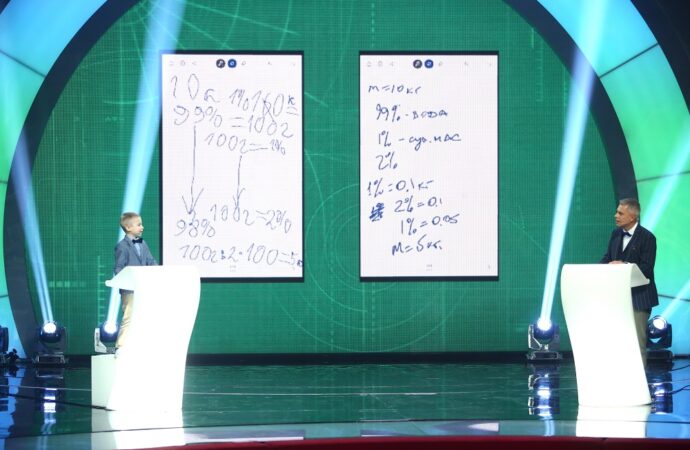 10 кг 1%
99% = 100г
100г = 1%
98% 100г = 2%
100г : 2 · 100 = 5
m = 10 кг
99% - вода
1% - сух. мас
2%
1% = 0.1 кг
2% = 0.1
1% = 0.05
m = 5 кг.